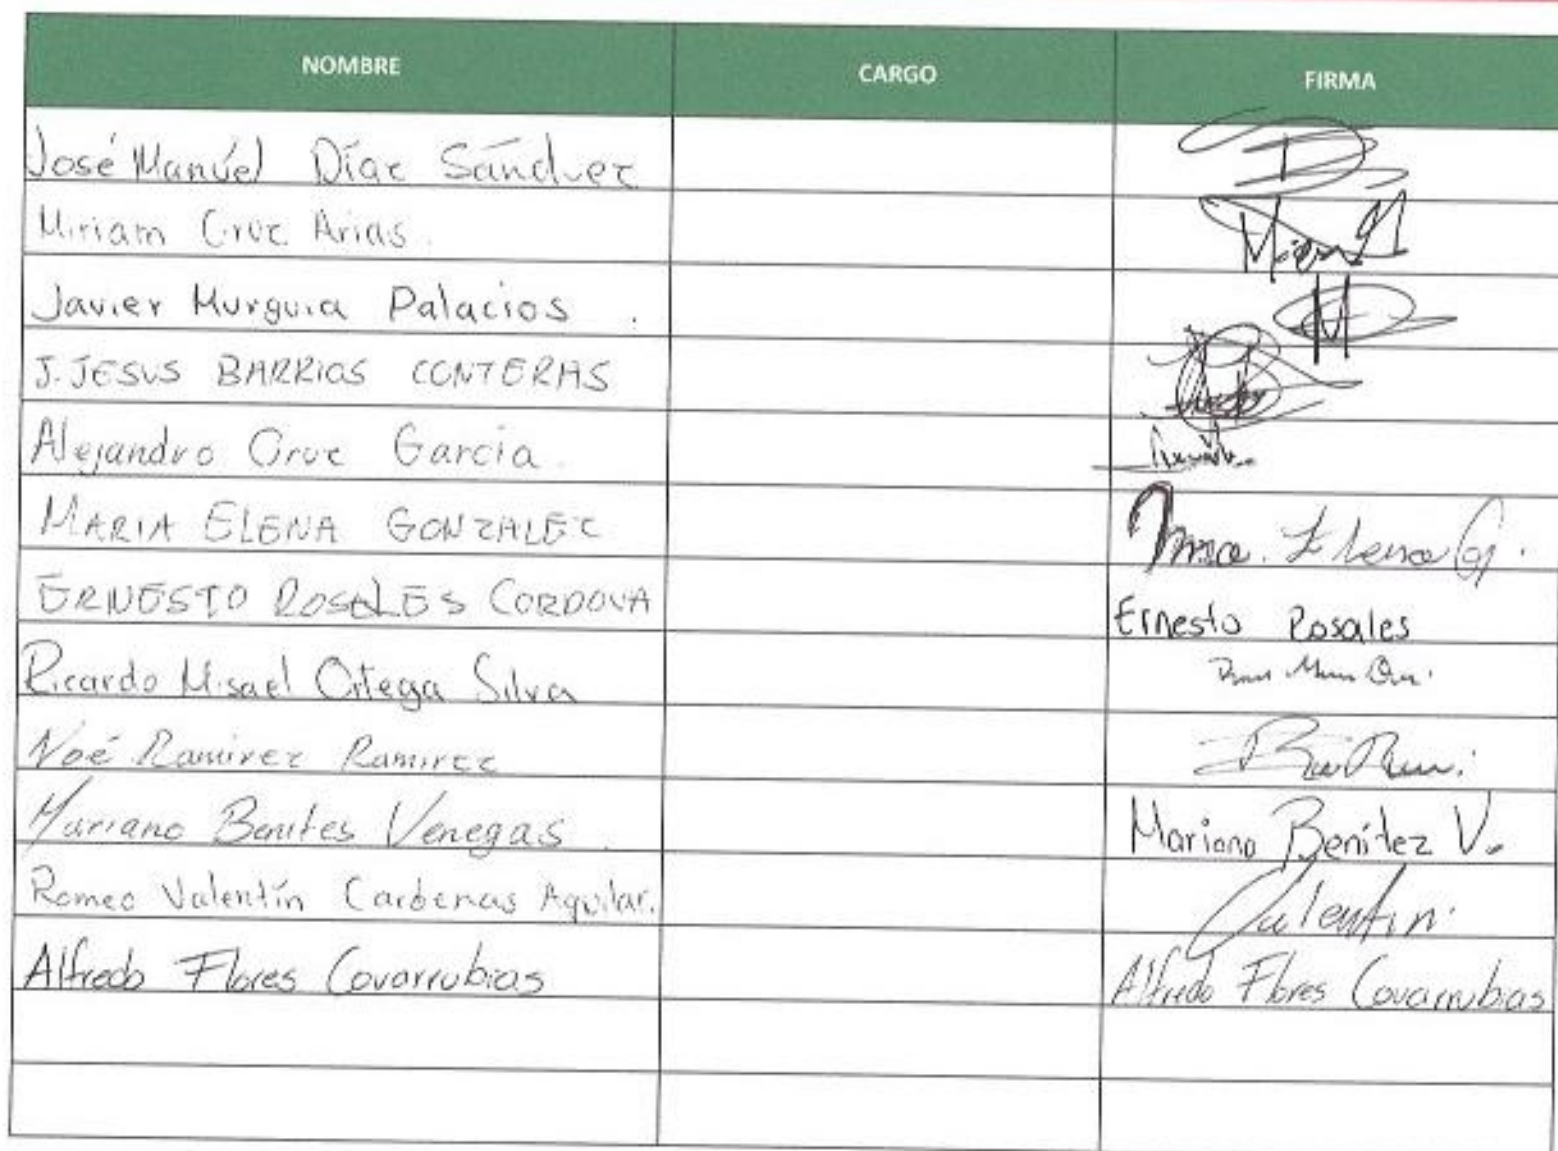 NOMBRE CARGO FIRMA
José Manúel Díaz Sánchez
Miriam Cruz Arias.
Javier Murguia Palacios.
J. JESUS BARRIOS CONTERAS
Alejandro Cruz Garcia.
MARIA ELENA GONZALEZ Ma. Elena G.
ERNESTO ROSALES CORDOVA Ernesto Rosales
Ricardo Misael Ortega Silva
Noé Ramirez Ramirez
Mariano Benites Venegas. Mariano Benítez V.
Romeo Valentín Cardenas Aguilar. Valentin.
Alfredo Flores Covarrubias Alfredo Flores Covarrubias